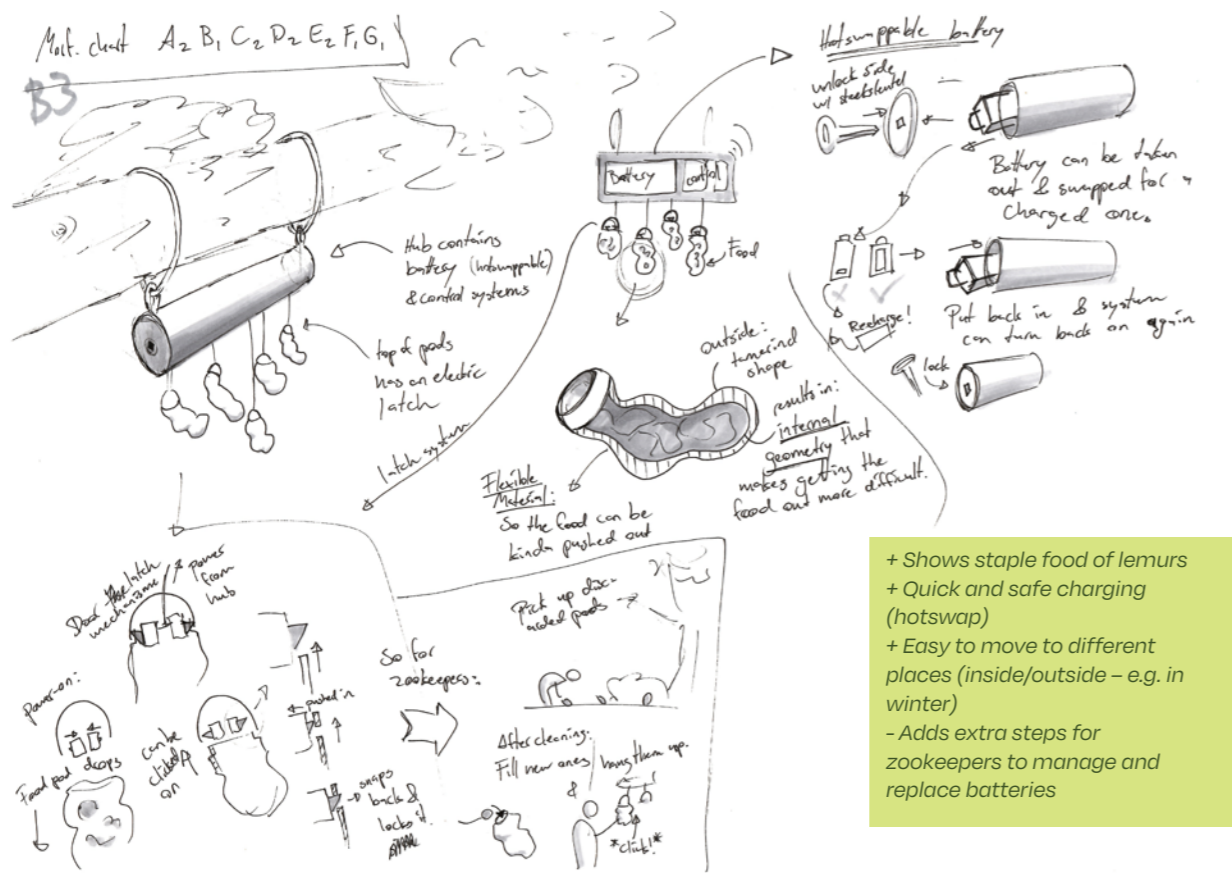 Morf. chart A2 B1 C2 D2 E2 F1 G1
B3
Hub contains
battery (hotswappable)
& control systems
top of pods
has an electric
latch
Battery
control
Food
latch system
Hotswappable battery
unlock side
w/ steeksleutel
Battery can be taken
out & swapped for a
charged one.
Recharge!
Put back in & system
can turn back on again
lock
outside:
tamarind
shape
results in:
internal
geometry that
makes getting the
food out more difficult.
Flexible
Material:
So the food can be
kinda pushed out
Door latch
mechanisme
Power
from
hub
Power-on:
Food pod drops
can be
clicked
on
pushed in
snaps
back &
locks it
So for
zookeepers:
Pick up disc-
arded pods
After cleaning:
Fill new ones
&
hang them up.
*click!*
+ Shows staple food of lemurs
+ Quick and safe charging
(hotswap)
+ Easy to move to different
places (inside/outside – e.g. in
winter)
- Adds extra steps for
zookeepers to manage and
replace batteries